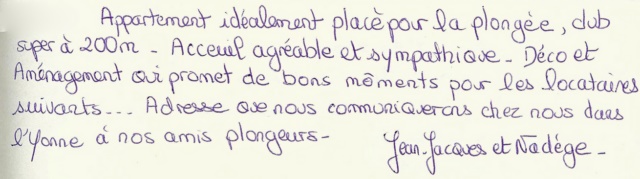 Appartement idéalement placé pour la plongée, club
super à 200m - Acceuil agréable et sympathique - Déco et
Aménagement qui promet de bons môments pour les locataires
suivants... Adresse que nous communiquerons chez nous dans
l'Yonne à nos amis plongeurs -
Jean-Jacques et Nadège -